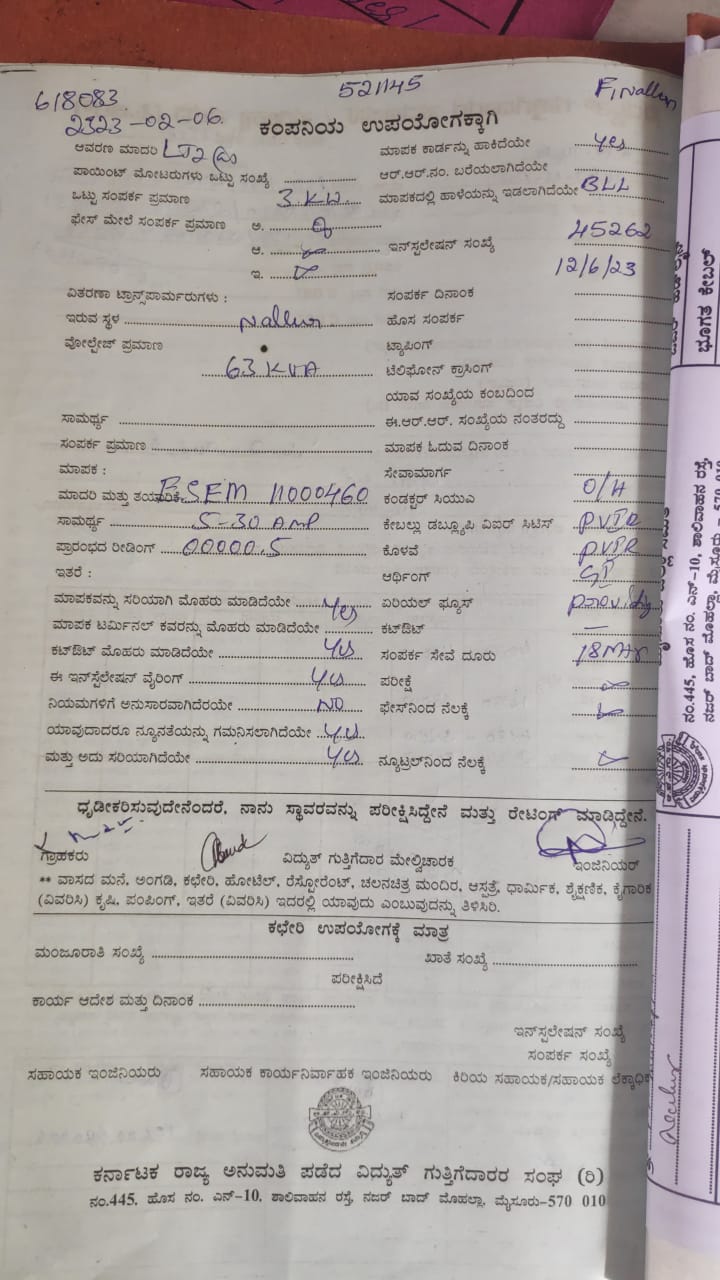 618083
521145
F, Nallur
2323-02-06.
ಕಂಪನಿಯ ಉಪಯೋಗಕ್ಕಾಗಿ
ಆವರಣ ಮಾದರಿ LT2 ಮಾಪಕ ಕಾರ್ಡನ್ನು ಹಾಕಿದೆಯೇ yes
ಪಾಯಿಂಟ್ ಮೋಟರುಗಳು ಒಟ್ಟು ಸಂಖ್ಯೆ ಆರ್.ಆರ್.ನಂ. ಬರೆಯಲಾಗಿದೆಯೇ
ಒಟ್ಟು ಸಂಪರ್ಕ ಪ್ರಮಾಣ 3 KW ಮಾಪಕದಲ್ಲಿ ಹಾಳೆಯನ್ನು ಇಡಲಾಗಿದೆಯೇ BLL
ಫೇಸ್ ಮೇಲೆ ಸಂಪರ್ಕ ಪ್ರಮಾಣ ಅ.
ಆ. ಇನ್‌ಸ್ಟಲೇಷನ್ ಸಂಖ್ಯೆ 45262
ಇ. 12/6/23
ವಿತರಣಾ ಟ್ರಾನ್ಸ್‌ಪಾರ್ಮರುಗಳು : ಸಂಪರ್ಕ ದಿನಾಂಕ
ಇರುವ ಸ್ಥಳ Nallur ಹೊಸ ಸಂಪರ್ಕ
ವೋಲ್ಟೇಜ್ ಪ್ರಮಾಣ ಟ್ಯಾಪಿಂಗ್
63 KVA ಟೆಲಿಫೋನ್ ಕ್ರಾಸಿಂಗ್
ಯಾವ ಸಂಖ್ಯೆಯ ಕಂಬದಿಂದ
ಸಾಮರ್ಥ್ಯ ಈ.ಆರ್.ಆರ್. ಸಂಖ್ಯೆಯ ನಂತರದ್ದು
ಸಂಪರ್ಕ ಪ್ರಮಾಣ ಮಾಪಕ ಓದುವ ದಿನಾಂಕ
ಮಾಪಕ : ಸೇವಾಮಾರ್ಗ
ಮಾದರಿ ಮತ್ತು ತಯಾರಿಕೆ 11000460 ಕಂಡಕ್ಟರ್ ಸಿಯುಎ O/H
ಸಾಮರ್ಥ್ಯ 5-30 AMP ಕೇಬಲ್ಲು ಡಬ್ಲ್ಯೂಪಿ ವಿಐರ್ ಸಿಟಿಸ್ PVIR
ಪ್ರಾರಂಭದ ರೀಡಿಂಗ್ 00000.5 ಕೊಳವೆ PVIR
ಇತರೆ : ಆರ್ಥಿಂಗ್ GI
ಮಾಪಕವನ್ನು ಸರಿಯಾಗಿ ಮೊಹರು ಮಾಡಿದೆಯೇ Yes ಏರಿಯಲ್ ಫ್ಯೂಸ್
ಮಾಪಕ ಟರ್ಮಿನಲ್ ಕವರನ್ನು ಮೊಹರು ಮಾಡಿದೆಯೇ ಕಟ್‌ಔಟ್ —
ಕಟ್‌ಔಟ್ ಮೊಹರು ಮಾಡಿದೆಯೇ Yes ಸಂಪರ್ಕ ಸೇವೆ ದೂರು 18 Mtr
ಈ ಇನ್‌ಸ್ಟಲೇಷನ್ ವೈರಿಂಗ್ Yes ಪರೀಕ್ಷೆ
ನಿಯಮಗಳಿಗೆ ಅನುಸಾರವಾಗಿದೆರೆಯೇ NO ಫೇಸ್‌ನಿಂದ ನೆಲಕ್ಕೆ
ಯಾವುದಾದರೂ ನ್ಯೂನತೆಯನ್ನು ಗಮನಿಸಲಾಗಿದೆಯೇ Yes
ಮತ್ತು ಅದು ಸರಿಯಾಗಿದೆಯೇ Yes ನ್ಯೂಟ್ರಲ್‌ನಿಂದ ನೆಲಕ್ಕೆ
ಧೃಡೀಕರಿಸುವುದೇನೆಂದರೆ, ನಾನು ಸ್ಥಾವರವನ್ನು ಪರೀಕ್ಷಿಸಿದ್ದೇನೆ ಮತ್ತು ರೇಟಿಂಗ್ ಮಾಡಿದ್ದೇನೆ.
ಗ್ರಾಹಕರು ವಿದ್ಯುತ್ ಗುತ್ತಿಗೆದಾರ ಮೇಲ್ವಿಚಾರಕ ಇಂಜಿನಿಯರ್
** ವಾಸದ ಮನೆ, ಅಂಗಡಿ, ಕಛೇರಿ, ಹೋಟೆಲ್, ರೆಸ್ಟೋರೆಂಟ್, ಚಲನಚಿತ್ರ ಮಂದಿರ, ಆಸ್ಪತ್ರೆ, ಧಾರ್ಮಿಕ, ಶೈಕ್ಷಣಿಕ, ಕೈಗಾರಿಕ
(ವಿವರಿಸಿ) ಕೃಷಿ, ಪಂಪಿಂಗ್, ಇತರೆ (ವಿವರಿಸಿ) ಇದರಲ್ಲಿ ಯಾವುದು ಎಂಬುವುದನ್ನು ತಿಳಿಸಿರಿ.
ಕಛೇರಿ ಉಪಯೋಗಕ್ಕೆ ಮಾತ್ರ
ಮಂಜೂರಾತಿ ಸಂಖ್ಯೆ ಖಾತೆ ಸಂಖ್ಯೆ
ಪರೀಕ್ಷಿಸಿದೆ
ಕಾರ್ಯ ಆದೇಶ ಮತ್ತು ದಿನಾಂಕ
ಇನ್‌ಸ್ಟಲೇಷನ್ ಸಂಖ್ಯೆ
ಸಂಪರ್ಕ ಸಂಖ್ಯೆ
ಸಹಾಯಕ ಇಂಜಿನಿಯರು ಸಹಾಯಕ ಕಾರ್ಯನಿರ್ವಾಹಕ ಇಂಜಿನಿಯರು ಕಿರಿಯ ಸಹಾಯಕ/ಸಹಾಯಕ
ಕರ್ನಾಟಕ ರಾಜ್ಯ ಅನುಮತಿ ಪಡೆದ ವಿದ್ಯುತ್ ಗುತ್ತಿಗೆದಾರರ ಸಂಘ (ರಿ)
ನಂ.445, ಹೊಸ ನಂ. ಎನ್-10, ಶಾಲಿವಾಹನ ರಸ್ತೆ, ನಜರ್ ಬಾದ್ ಮೊಹಲ್ಲಾ, ಮೈಸೂರು-570 010
ಭೂಗತ ಕೇಬಲ್
ನಂ.445, ಹೊಸ ನಂ. ಎನ್-10, ಶಾಲಿವಾಹನ ರಸ್ತೆ,
ನಜರ್ ಬಾದ್ ಮೊಹಲ್ಲಾ, ಮೈಸೂರು - 570 010